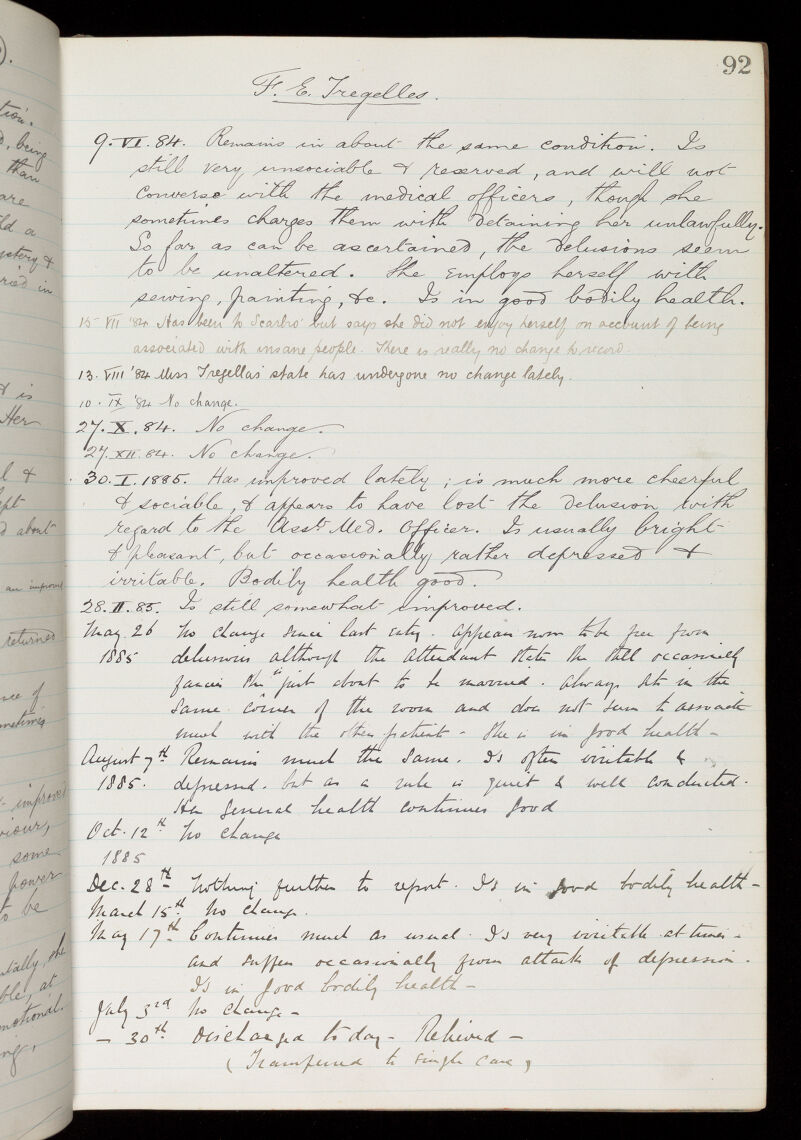 92
F. E. Tregelles.
9.VI.84. Remains in about the same condition. Is
still very unsociable & reserved, and will not
converse with the medical officers, though she
sometimes charges them with detaining her unlawfully.
So far as can be ascertained, the delusions seem
to be unaltered. She employs herself with
sewing, painting, &c. Is in good bodily health.
15 VII '84 Has been to Scarbro' but says she did not enjoy herself on account of being
associated with insane people. There is really no change to record.
13. VIII '84 Miss Tregellas' state has undergone no change lately.
10. IX '84 No change.
27.X.84. No change.
27.XII.84. No change.
30.I.1885. Has improved lately; is much more cheerful
& sociable, & appears to have lost the delusion with
regard to the Asst. Med. Officer. Is usually bright
& pleasant, but occasionally rather depressed &
irritable. Bodily health good.
28.II.85. Is still somewhat improved.
May. 26 No change since last entry. Appears now to be free from
1885 delusions although the attendant states she still occasionally
fancies she is "just about to be married. Always sits in the
same corner of the room and does not seem to associate
much with the other patients - She is in good health -
August 7th Remains much the same. Is often irritable &
1885. depressed. but as a rule is quiet & well conducted.
Her general health continues good
Oct. 12th No change
1885
Dec. 28th Nothing further to report. Is in good bodily health -
March 15th. No change.
May 17th Continues much as usual. Is very irritable at times -
and suffers occasionally from attacks of depression.
Is in good bodily health -
July 3rd No change -
- 30th Discharged to day - Relieved -
(Transferred to single care)